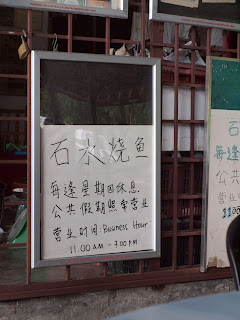 石水烧鱼
每逢星期四休息.
公共假期照常营业
营业时间:Business Hour
11.00 A.M - 7.00 P.M
石
每逢
公共
营业
11.00